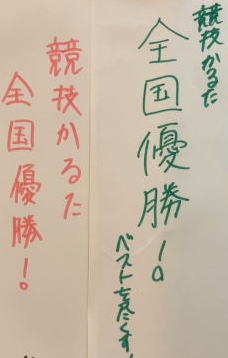 競技かるた
全国優勝!。
ベストを尽くす!
競技かるた
全国優勝!